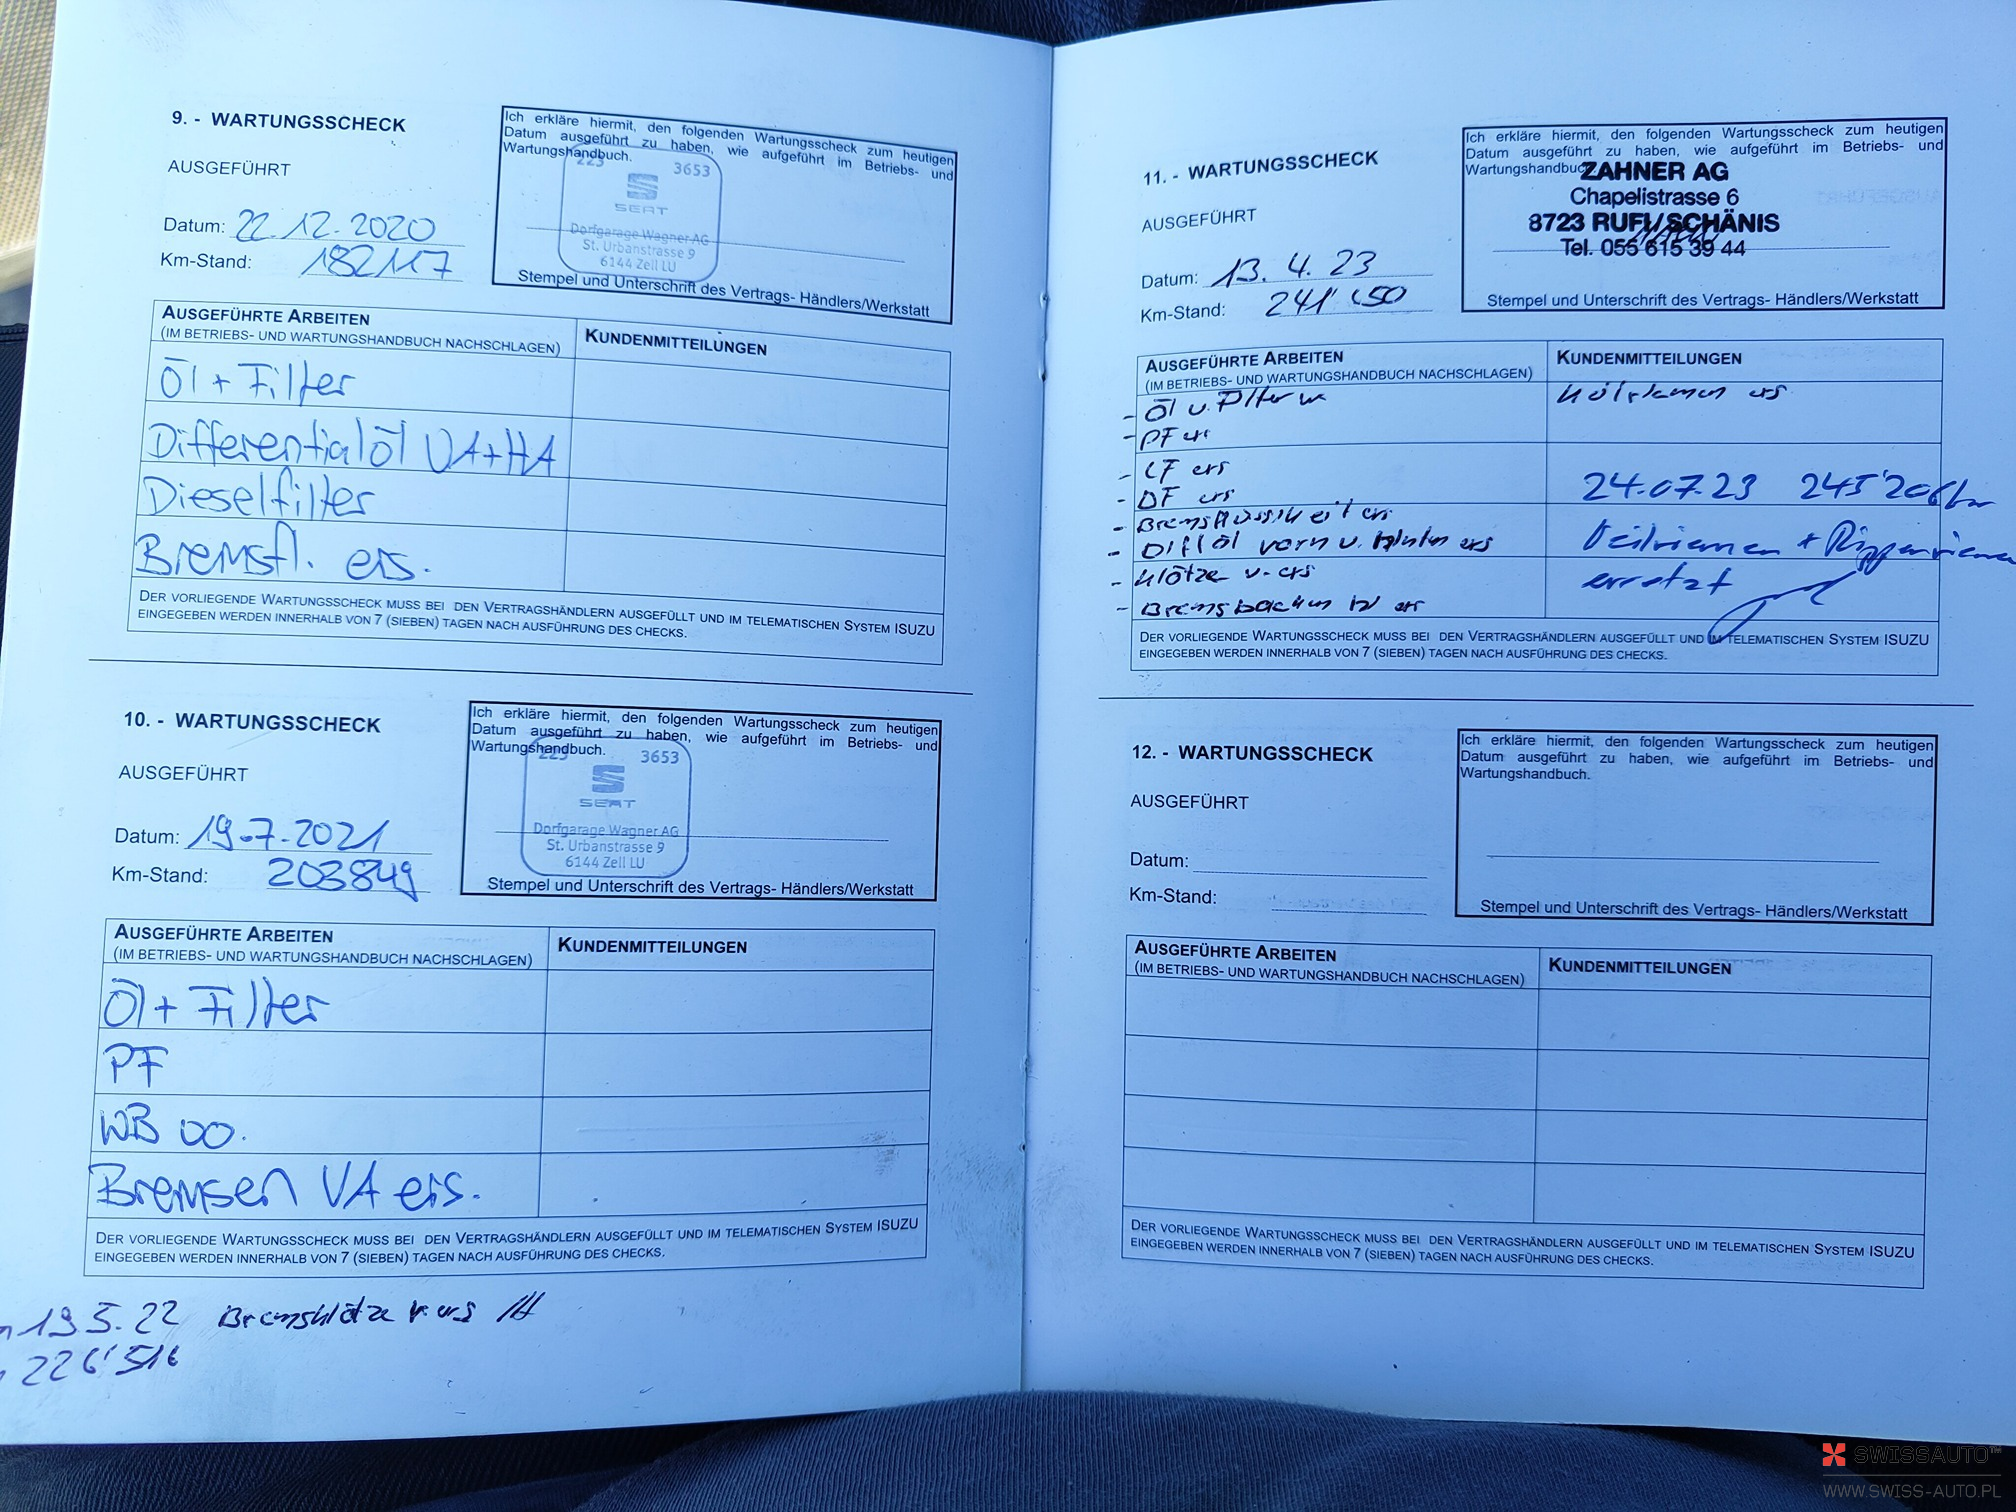 9. - WARTUNGSSCHECK
AUSGEFÜHRT
Datum: 22.12.2020
Km-Stand: 182117
Ich erkläre hiermit, den folgenden Wartungsscheck zum heutigen
Datum ausgeführt zu haben, wie aufgeführt im Betriebs- und
Wartungshandbuch.
223 3653
SEAT
Dorfgarage Wagner AG
St. Urbanstrasse 9
6144 Zell LU
Stempel und Unterschrift des Vertrags- Händlers/Werkstatt
AUSGEFÜHRTE ARBEITEN
(IM BETRIEBS- UND WARTUNGSHANDBUCH NACHSCHLAGEN)
KUNDENMITTEILUNGEN
Öl + Filter
Differentialöl VA+HA
Dieselfilter
Bremsfl. ers.
DER VORLIEGENDE WARTUNGSSCHECK MUSS BEI DEN VERTRAGSHÄNDLERN AUSGEFÜLLT UND IM TELEMATISCHEN SYSTEM ISUZU
EINGEGEBEN WERDEN INNERHALB VON 7 (SIEBEN) TAGEN NACH AUSFÜHRUNG DES CHECKS.
10. - WARTUNGSSCHECK
AUSGEFÜHRT
Datum: 19.7.2021
Km-Stand: 203849
Ich erkläre hiermit, den folgenden Wartungsscheck zum heutigen
Datum ausgeführt zu haben, wie aufgeführt im Betriebs- und
Wartungshandbuch.
223 3653
SEAT
Dorfgarage Wagner AG
St. Urbanstrasse 9
6144 Zell LU
Stempel und Unterschrift des Vertrags- Händlers/Werkstatt
AUSGEFÜHRTE ARBEITEN
(IM BETRIEBS- UND WARTUNGSHANDBUCH NACHSCHLAGEN)
KUNDENMITTEILUNGEN
Öl + Filter
PF
WB OO.
Bremsen VA ers.
DER VORLIEGENDE WARTUNGSSCHECK MUSS BEI DEN VERTRAGSHÄNDLERN AUSGEFÜLLT UND IM TELEMATISCHEN SYSTEM ISUZU
EINGEGEBEN WERDEN INNERHALB VON 7 (SIEBEN) TAGEN NACH AUSFÜHRUNG DES CHECKS.
19.5.22 Bremsklötze v. ers
226'516
11. - WARTUNGSSCHECK
AUSGEFÜHRT
Datum: 13.4.23
Km-Stand: 241'
Ich erkläre hiermit, den folgenden Wartungsscheck zum heutigen
Datum ausgeführt zu haben, wie aufgeführt im Betriebs- und
Wartungshandbuch.
ZAHNER AG
Chapelistrasse 6
8723 RUFI/SCHÄNIS
Tel. 055 615 39 44
Stempel und Unterschrift des Vertrags- Händlers/Werkstatt
AUSGEFÜHRTE ARBEITEN
(IM BETRIEBS- UND WARTUNGSHANDBUCH NACHSCHLAGEN)
KUNDENMITTEILUNGEN
- Öl u. Filter
- PF ers
- LF ers
- DF ers
- Bremsflüssikeit ers
- Diff öl vorn u. hinten ers
- Klötze v. ers
- Bremsbacken ers
ers
24.07.23 245'206
Keilriemen + Rippenriemen
ersetzt
DER VORLIEGENDE WARTUNGSSCHECK MUSS BEI DEN VERTRAGSHÄNDLERN AUSGEFÜLLT UND IM TELEMATISCHEN SYSTEM ISUZU
EINGEGEBEN WERDEN INNERHALB VON 7 (SIEBEN) TAGEN NACH AUSFÜHRUNG DES CHECKS.
12. - WARTUNGSSCHECK
AUSGEFÜHRT
Datum:
Km-Stand:
Ich erkläre hiermit, den folgenden Wartungsscheck zum heutigen
Datum ausgeführt zu haben, wie aufgeführt im Betriebs- und
Wartungshandbuch.
Stempel und Unterschrift des Vertrags- Händlers/Werkstatt
AUSGEFÜHRTE ARBEITEN
(IM BETRIEBS- UND WARTUNGSHANDBUCH NACHSCHLAGEN)
KUNDENMITTEILUNGEN
DER VORLIEGENDE WARTUNGSSCHECK MUSS BEI DEN VERTRAGSHÄNDLERN AUSGEFÜLLT UND IM TELEMATISCHEN SYSTEM ISUZU
EINGEGEBEN WERDEN INNERHALB VON 7 (SIEBEN) TAGEN NACH AUSFÜHRUNG DES CHECKS.
SWISSAUTO™
WWW.SWISS-AUTO.PL